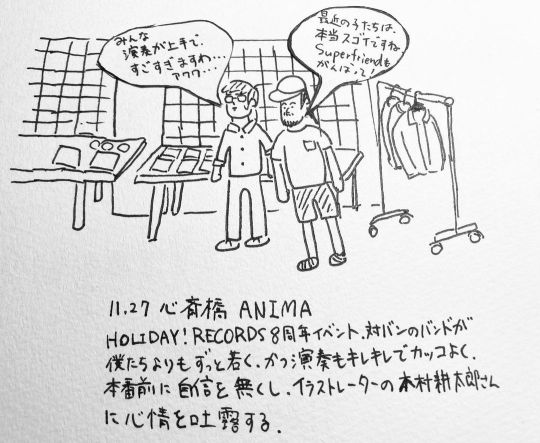 みんな
演奏が上手で、
すごすぎますわ…
アワワ…
最近の子たちは、
本当スゴイですね
Superfriendも
がんばって!
11.27 心斎橋 ANIMA
HOLIDAY! RECORDS 8周年イベント、対バンのバンドが
僕たちよりもずっと若く、かつ演奏もキレキレでカッコよく、
本番前に自信を無くし、イラストレーターの本村耕太郎さん
に心情を吐露する。